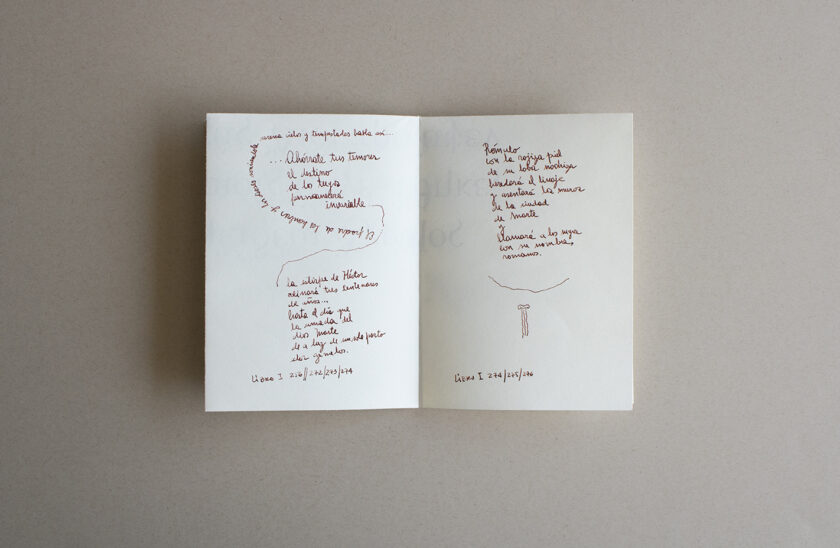 El padre de los hombres y los dioses sonriéndole
serena cielos y tempestades habla así...
...Ahórrate tus temores
el destino
de los tuyos
permanecerá
invariable
La estirpe de Héctor
reinará tres centenares
de años...
hasta el día que
la amada del
dios Marte
de a luz de un solo parto
dos gemelos.
Libro I 256//272/273/274
Rómulo
con la rojiza piel
de su loba nodriza
heredará el linaje
y asentará los muros
de la ciudad
de Marte
y
llamará a los suyos
con su nombre,
romanos.
Libro I 274/275/276